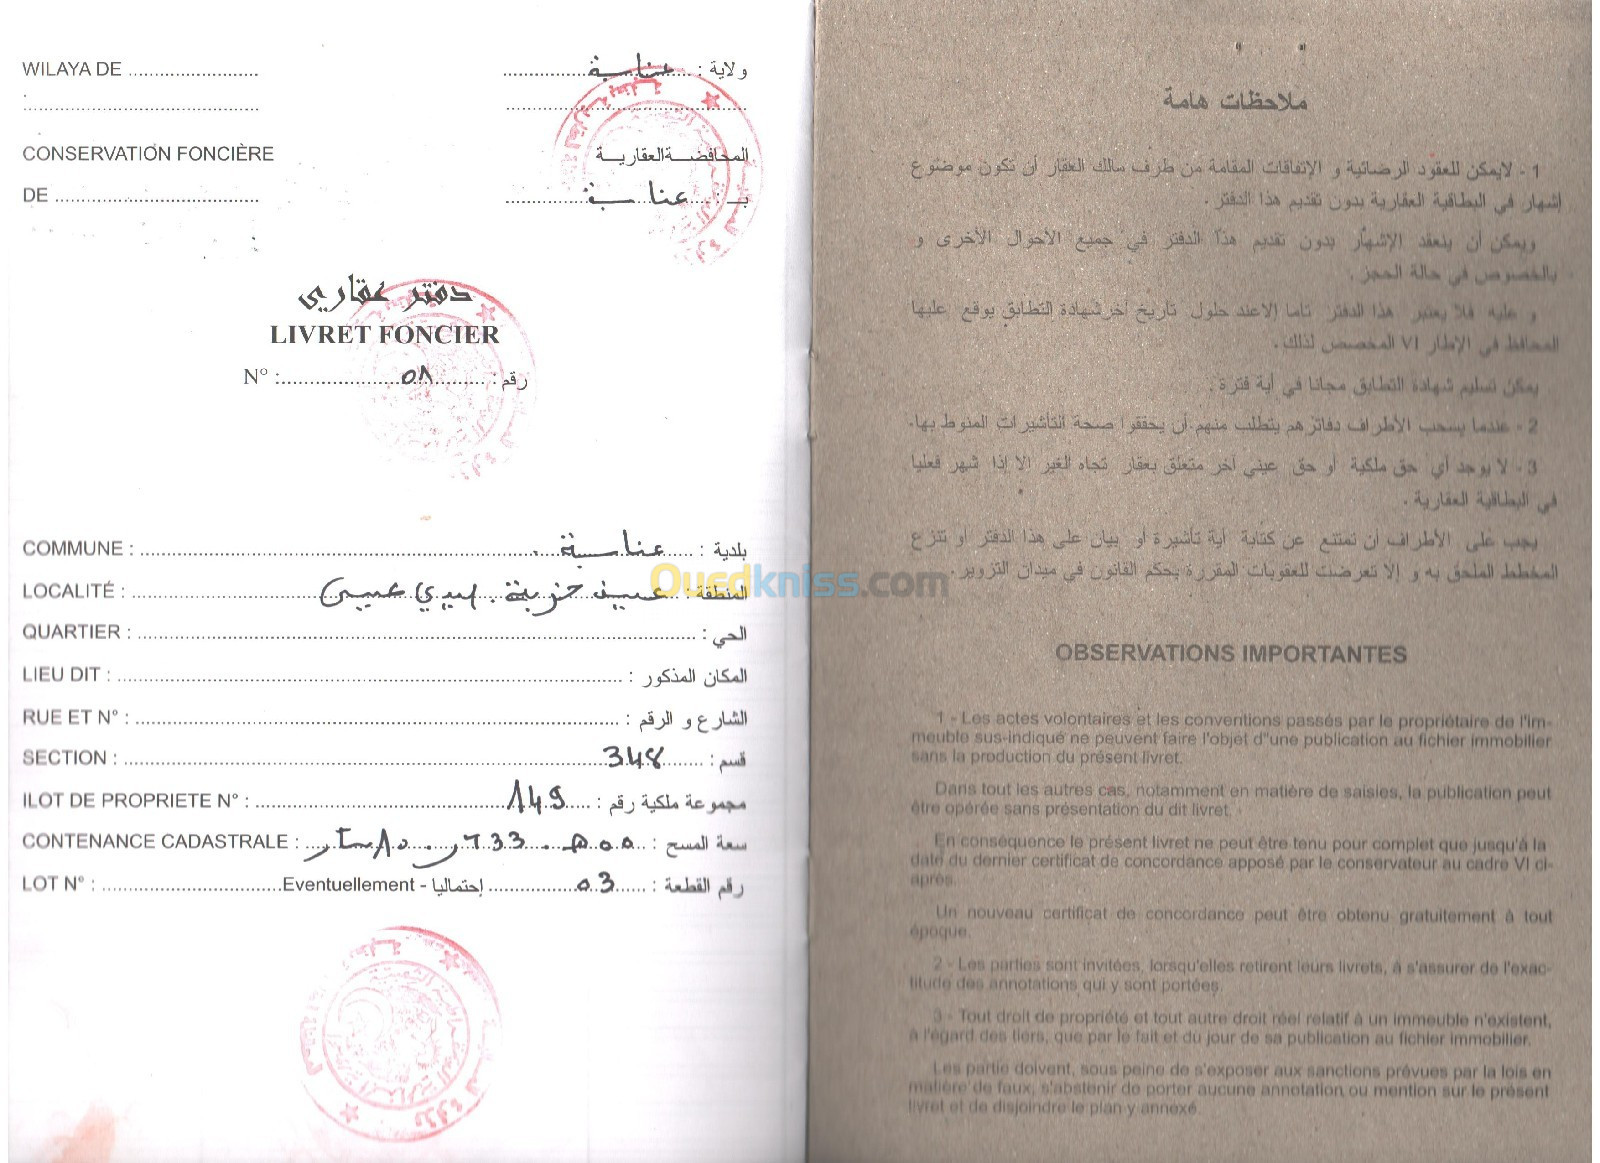 WILAYA DE ........................ ولاية : عنابة
CONSERVATION FONCIÈRE المحافظة العقارية
DE ........................ بـ : عنابة
دفتر عقاري
LIVRET FONCIER
N° : 08 رقم :
COMMUNE : عنابة بلدية :
LOCALITÉ : عين خزبة . سيدي عيسى المنطقة :
QUARTIER : الحي :
LIEU DIT : المكان المذكور :
RUE ET N° : الشارع و الرقم :
SECTION : 348 قسم :
ILOT DE PROPRIETE N° : 149 مجموعة ملكية رقم :
CONTENANCE CADASTRALE : سعة المسح :
LOT N° : Eventuellement - إحتماليا 03 رقم القطعة :
Ouedkniss.com
ملاحظات هامة
1 - لايمكن للعقود الرضائية و الإتفاقات المقامة من طرف مالك العقار أن تكون موضوع
إشهار في البطاقية العقارية بدون تقديم هذا الدفتر .
ويمكن أن ينعقد الإشهار بدون تقديم هذا الدفتر في جميع الأحوال الأخرى و
بالخصوص في حالة الحجز .
و عليه فلا يعتبر هذا الدفتر تاما إلاعند حلول تاريخ آخر شهادة التطابق يوقع عليها
المحافظ في الإطار VI المخصص لذلك .
يمكن تسليم شهادة التطابق مجانا في أية فترة .
2 - عندما يسحب الأطراف دفاترهم يتطلب منهم أن يحققوا صحة التأشيرات المنوط بها.
3 - لا يوجد أي حق ملكية أو حق عيني آخر متعلق بعقار تجاه الغير الا إذا شهر فعليا
في البطاقية العقارية .
يجب على الأطراف أن تمتنع عن كتابة أية تأشيرة أو بيان على هذا الدفتر أو تنزع
المخطط الملحق به و إلا تعرضت للعقوبات المقررة بحكم القانون في ميدان التزوير .
OBSERVATIONS IMPORTANTES
1 - Les actes volontaires et les conventions passés par le propriétaire de l'im-
meuble sus-indiqué ne peuvent faire l'objet d"une publication au fichier immobilier
sans la production du présent livret.
Dans tout les autres cas, notamment en matière de saisies, la publication peut
être opérée sans présentation du dit livret.
En conséquence le présent livret ne peut être tenu pour complet que jusqu'à la
date du dernier certificat de concordance apposé par le conservateur au cadre VI ci-
après.
Un nouveau certificat de concordance peut être obtenu gratuitement à tout
époque.
2 - Les parties sont invitées, lorsqu'elles retirent leurs livrets, à s'assurer de l'exac-
titude des annotations qui y sont portées.
3 - Tout droit de propriété et tout autre droit réel relatif à un immeuble n'existent,
à l'égard des tiers, que par le fait et du jour de sa publication au fichier immobilier.
Les partie doivent, sous peine de s'exposer aux sanctions prévues par la lois en
matière de faux, s'abstenir de porter aucune annotation ou mention sur le présent
livret et de disjoindre le plan y annexé.